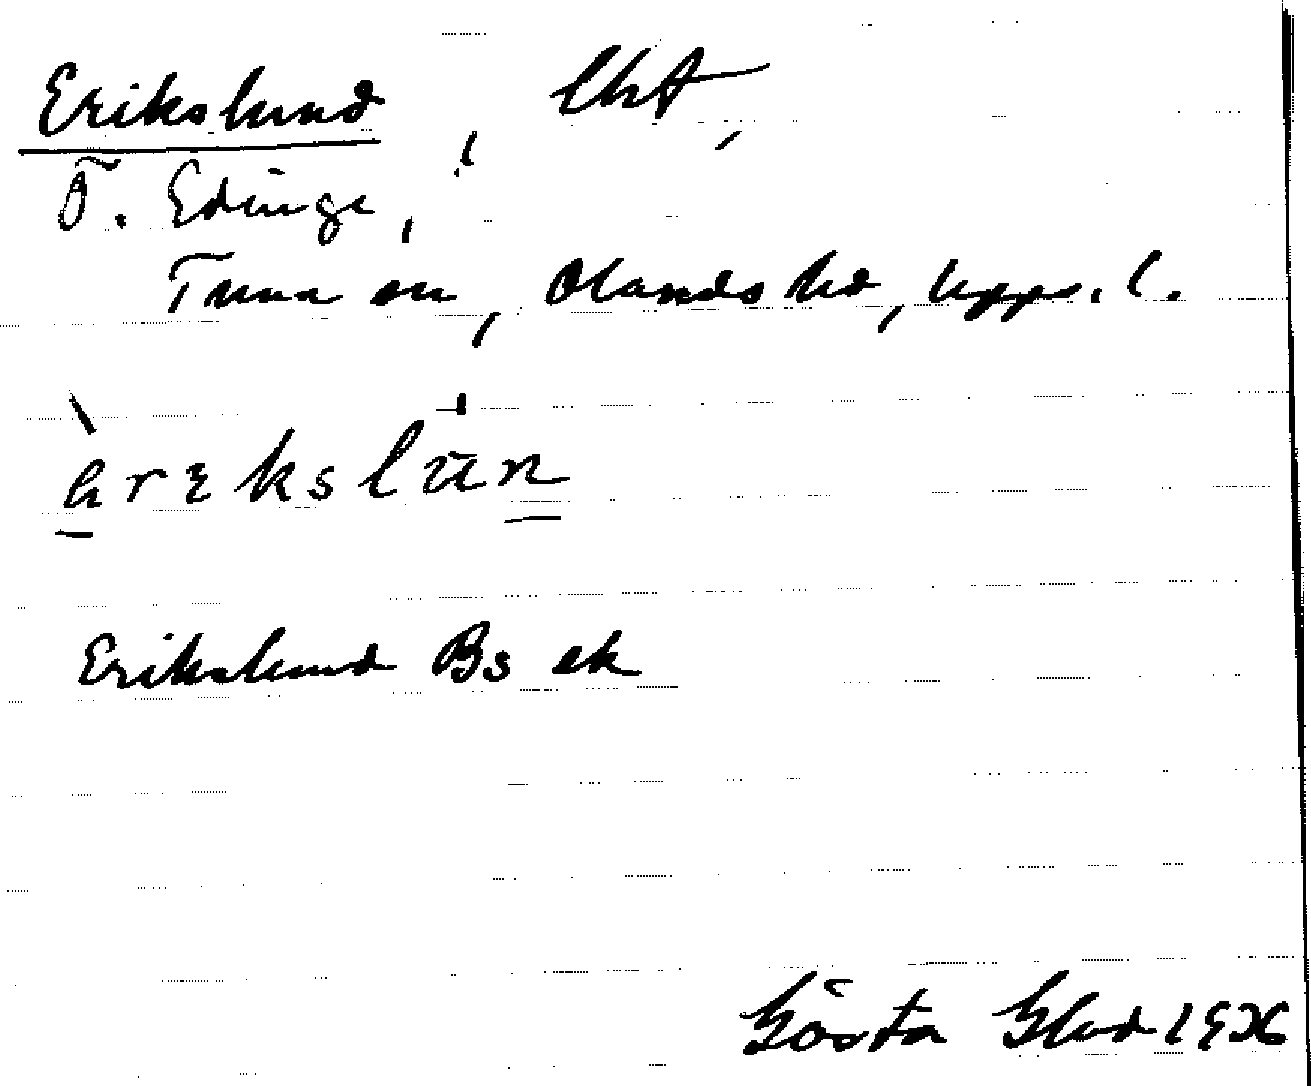 Erikslund, lht,
Ö. Edinge,
Tuna sn, Olands hd, Upps. l.
Erikslund Bs ek
Gösta Glad 1926